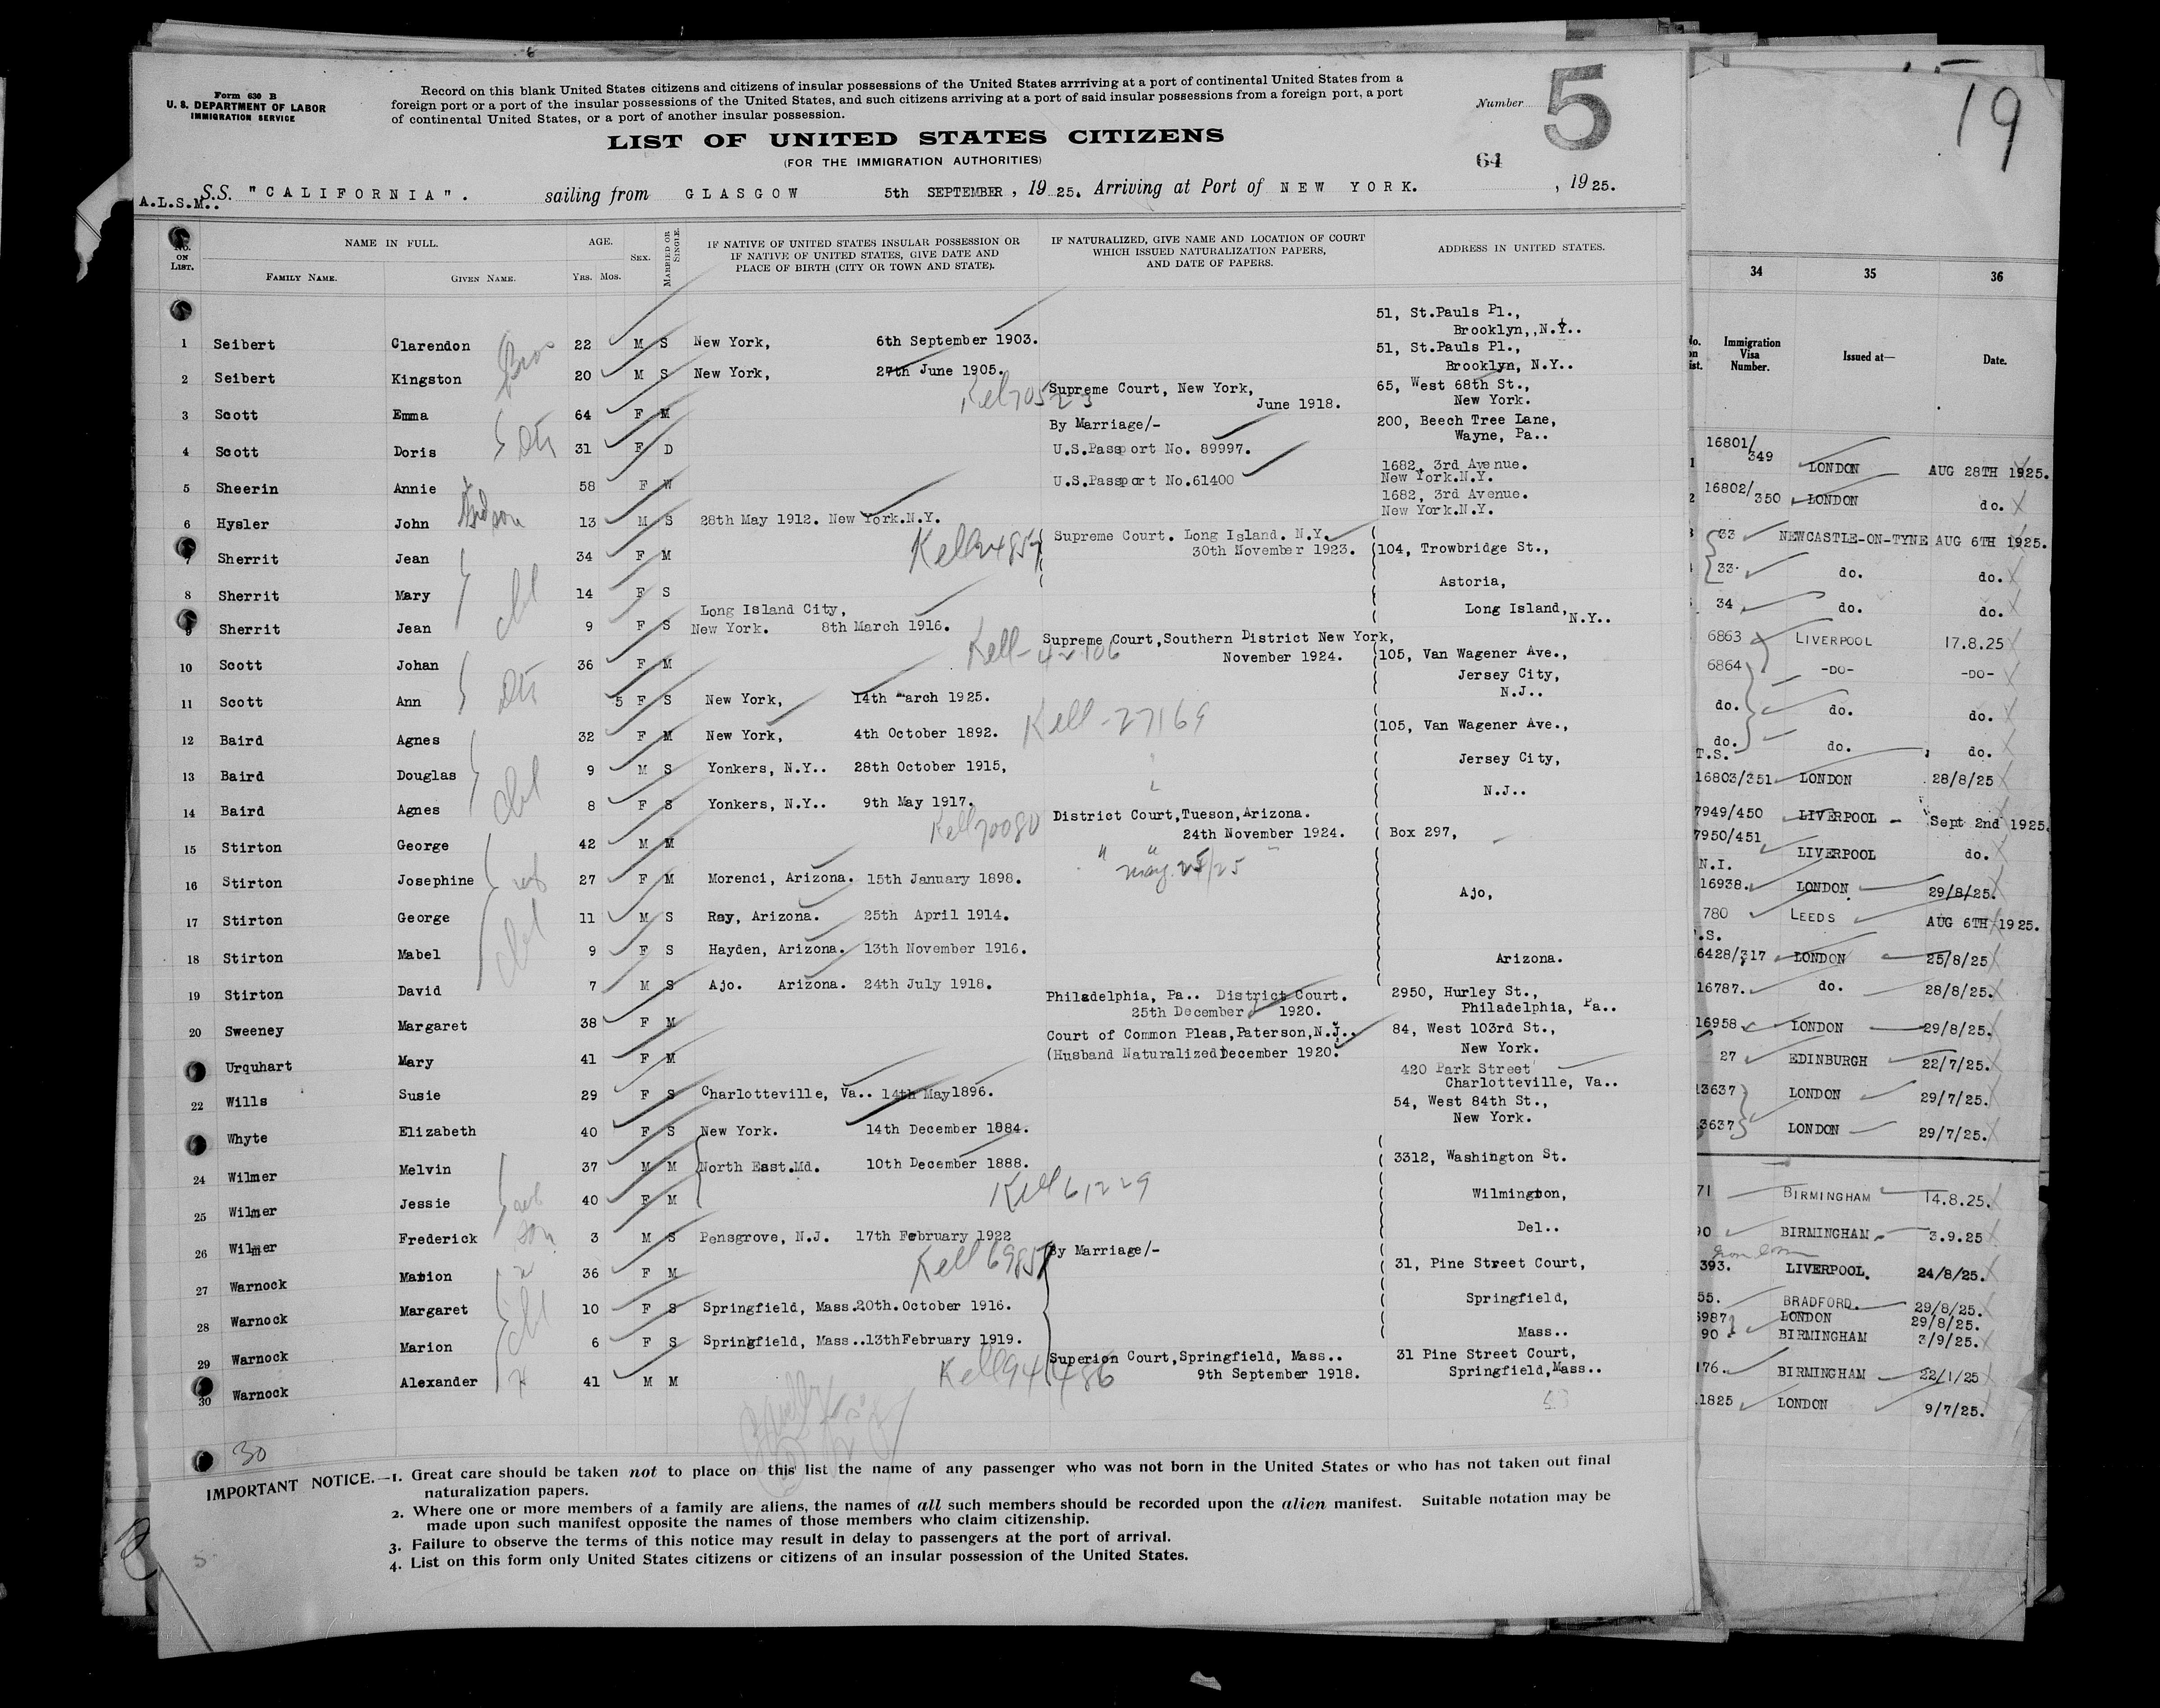 Form 630 B
U. S. DEPARTMENT OF LABOR
IMMIGRATION SERVICE
Record on this blank United States citizens and citizens of insular possessions of the United States arrriving at a port of continental United States from a
foreign port or a port of the insular possessions of the United States, and such citizens arriving at a port of said insular possessions from a foreign port, a port
of continental United States, or a port of another insular possession.
Number 5
LIST OF UNITED STATES CITIZENS
(FOR THE IMMIGRATION AUTHORITIES)
64
A.L.S.M.. S.S. "CALIFORNIA". sailing from GLASGOW 5th SEPTEMBER, 19 25. Arriving at Port of NEW YORK. , 1925.
No. ON LIST. NAME IN FULL. AGE. SEX. MARRIED OR SINGLE. IF NATIVE OF UNITED STATES INSULAR POSSESSION OR IF NATIVE OF UNITED STATES, GIVE DATE AND PLACE OF BIRTH (CITY OR TOWN AND STATE). IF NATURALIZED, GIVE NAME AND LOCATION OF COURT WHICH ISSUED NATURALIZATION PAPERS, AND DATE OF PAPERS. ADDRESS IN UNITED STATES.
FAMILY NAME. GIVEN NAME. Yrs. Mos.
51, St.Pauls Pl.,
Brooklyn,,N.Y..
1 Seibert Clarendon Bros 22 M S New York, 6th September 1903.
51, St.Pauls Pl.,
Brooklyn, N.Y..
2 Seibert Kingston 20 M S New York, 27th June 1905.
Kell 70523 Supreme Court, New York, June 1918.
65, West 68th St.,
New York.
3 Scott Emma 64 F M
By Marriage/-
200, Beech Tree Lane,
Wayne, Pa..
4 Scott Doris 31 F D U.S.Passport No. 89997.
1682, 3rd Avenue.
New York.N.Y.
5 Sheerin Annie 58 F W U.S.Passport No.61400
1682, 3rd Avenue.
New York.N.Y.
6 Hysler John 13 M S 28th May 1912. New York.N.Y.
Supreme Court. Long Island. N.Y.
30th November 1923.
7 Sherrit Jean 34 F M 104, Trowbridge St.,
Astoria,
8 Sherrit Mary 14 F S
Long Island City, Long Island,
N.Y..
9 Sherrit Jean 9 F S New York. 8th March 1916.
Kell-42106 Supreme Court,Southern District New York,
November 1924.
10 Scott Johan 36 F M 105, Van Wagener Ave.,
Jersey City,
N.J..
11 Scott Ann 5 F S New York, 14th March 1925.
Kell-27169
12 Baird Agnes 32 F M New York, 4th October 1892. 105, Van Wagener Ave.,
13 Baird Douglas 9 M S Yonkers, N.Y.. 28th October 1915, Jersey City,
N.J..
14 Baird Agnes 8 F S Yonkers, N.Y.. 9th May 1917.
Kell 70080 District Court,Tueson,Arizona.
24th November 1924.
15 Stirton George 42 M M Box 297,
" " May. 25/25
16 Stirton Josephine 27 F M Morenci, Arizona. 15th January 1898. Ajo,
17 Stirton George 11 M S Ray, Arizona. 25th April 1914.
18 Stirton Mabel 9 F S Hayden, Arizona. 13th November 1916. Arizona.
19 Stirton David 7 M S Ajo. Arizona. 24th July 1918.
Philadelphia, Pa.. District Court.
25th December 1920.
2950, Hurley St.,
Philadelphia, Pa..
20 Sweeney Margaret 38 F M
Court of Common Pleas,Paterson,N.J..
(Husband Naturalized)December 1920.
84, West 103rd St.,
New York.
Urquhart Mary 41 F M
420 Park Street
Charlotteville, Va..
22 Wills Susie 29 F S Charlotteville, Va.. 14th May1896.
54, West 84th St.,
New York.
Whyte Elizabeth 40 F S New York. 14th December 1884.
24 Wilmer Melvin 37 M M North East.Md. 10th December 1888. 3312, Washington St.
Kell 61229
25 Wilmer Jessie 40 F M Wilmington,
Del..
26 Wilmer Frederick son 3 M S Pensgrove, N.J. 17th February 1922
By Marriage/-
27 Warnock Marion 36 F M 31, Pine Street Court,
28 Warnock Margaret 10 F S Springfield, Mass.20th.October 1916. Springfield,
29 Warnock Marion 6 F S Springfield, Mass..13thFebruary 1919. Mass..
Superion Court,Springfield, Mass..
9th September 1918.
31 Pine Street Court,
Springfield,Mass..
30 Warnock Alexander 41 M M
30
IMPORTANT NOTICE.—1. Great care should be taken not to place on this list the name of any passenger who was not born in the United States or who has not taken out final
naturalization papers.
2. Where one or more members of a family are aliens, the names of all such members should be recorded upon the alien manifest. Suitable notation may be
made upon such manifest opposite the names of those members who claim citizenship.
3. Failure to observe the terms of this notice may result in delay to passengers at the port of arrival.
4. List on this form only United States citizens or citizens of an insular possession of the United States.
19
34 35 36
Immigration Visa Number. Issued at— Date.
16801/349 LONDON AUG 28TH 1925.
16802/350 LONDON do.
33 NEWCASTLE-ON-TYNE AUG 6TH 1925.
33 do. do.
34 do. do.
6863 LIVERPOOL 17.8.25
6864 -DO- -DO-
do. do. do.
do. do. do.
T.S.
16803/351 LONDON 28/8/25
7949/450 LIVERPOOL - Sept 2nd 1925.
7950/451 LIVERPOOL do.
N.I.
16938. LONDON 29/8/25.
780 LEEDS AUG 6TH 1925.
.S.
6428/317 LONDON 25/8/25
16787. do. 28/8/25.
16958 LONDON 29/8/25.
27 EDINBURGH 22/7/25.
13637 LONDON 29/7/25.
3637 LONDON 29/7/25.
71 BIRMINGHAM 14.8.25.
90 BIRMINGHAM. 3.9.25
393. LIVERPOOL. 24/8/25.
55. BRADFORD. 29/8/25.
6987 LONDON 29/8/25.
90 BIRMINGHAM 3/9/25.
176. BIRMINGHAM 22/1/25
1825 LONDON 9/7/25.